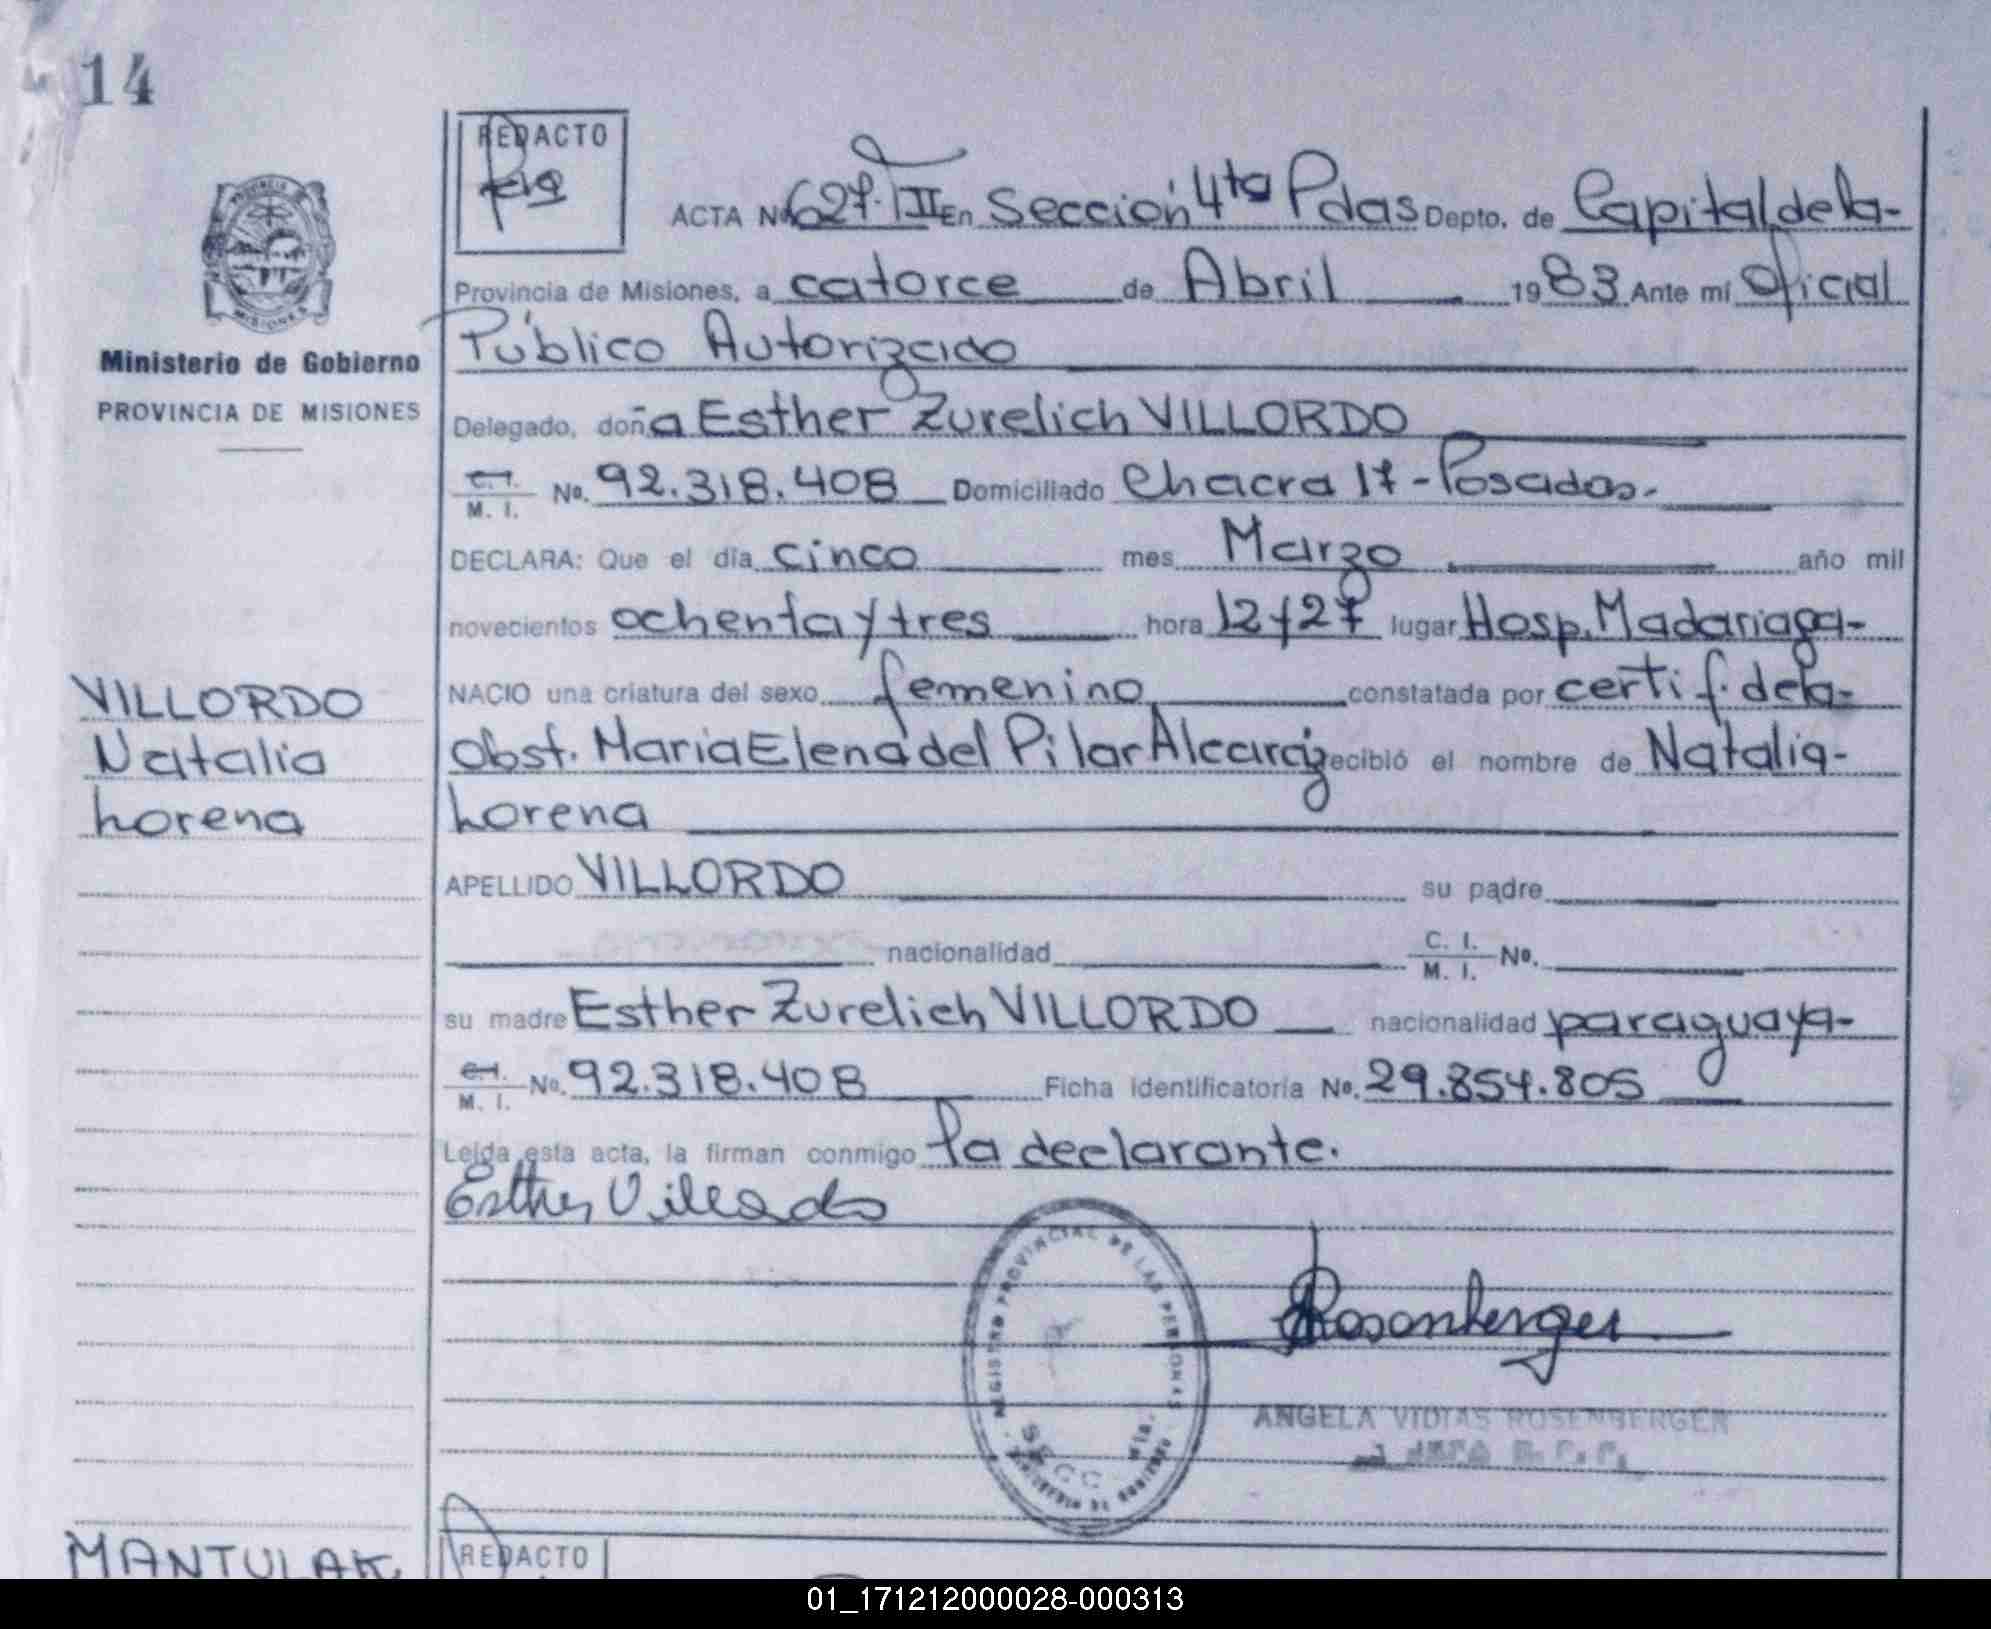 14
REDACTO
ACTA No 627. T II En Sección 4ta Pdas Depto. de Capital de la-
PROVINCIA DE
MISIONES
Provincia de Misiones, a catorce de Abril 1983 Ante mí Oficial
Ministerio de Gobierno
Público Autorizado
PROVINCIA DE MISIONES
Delegado, doña Esther Zurelich VILLORDO
C. I. / M. I. No. 92.318.408 Domiciliado Chacra 17 - Posadas.-
DECLARA: Que el día cinco mes Marzo año mil
novecientos ochenta y tres hora 12 y 27 lugar Hosp. Madariaga-
VILLORDO
Natalia
Lorena
NACIO una criatura del sexo femenino constatada por certif. de la-
obst. Maria Elena del Pilar Alcaráz recibió el nombre de Natalia-
Lorena
APELLIDO VILLORDO su padre
nacionalidad C. I. / M. I. No.
su madre Esther Zurelich VILLORDO nacionalidad paraguaya-
C. I. / M. I. No. 92.318.408 Ficha identificatoria No. 29.854.805
Leída esta acta, la firman conmigo la declarante.
Esther Villordo
REGISTRO PROVINCIAL DE LAS PERSONAS
MINISTERIO DE GOBIERNO
Rosenberger
ANGELA VIDIAS ROSENBERGER
JEFA R. P. P.
MANTULAK
REDACTO
01_171212000028-000313